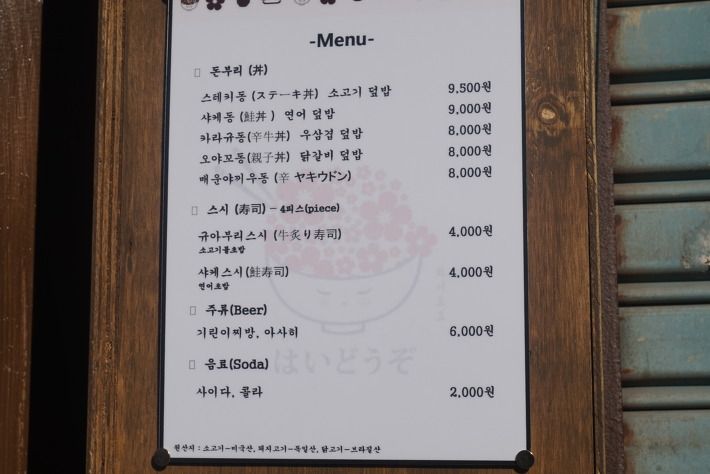 -Menu-
돈부리 (丼)
스테키동 (ステーキ丼) 소고기 덮밥 9,500원
샤케동 (鮭丼) 연어 덮밥 9,000원
카라규동(辛牛丼) 우삼겹 덮밥 8,000원
오야꼬동(親子丼) 닭갈비 덮밥 8,000원
매운야끼우동 (辛 ヤキウドン) 8,000원
스시 (寿司) - 4피스(piece)
규아부리스시 (牛炙り寿司) 4,000원
소고기불초밥
샤케스시(鮭寿司) 4,000원
연어초밥
주류(Beer)
기린이찌방, 아사히 6,000원
음료(Soda)
사이다, 콜라 2,000원
はいどうぞ
원산지 : 소고기-미국산, 돼지고기-독일산, 닭고기-브라질산